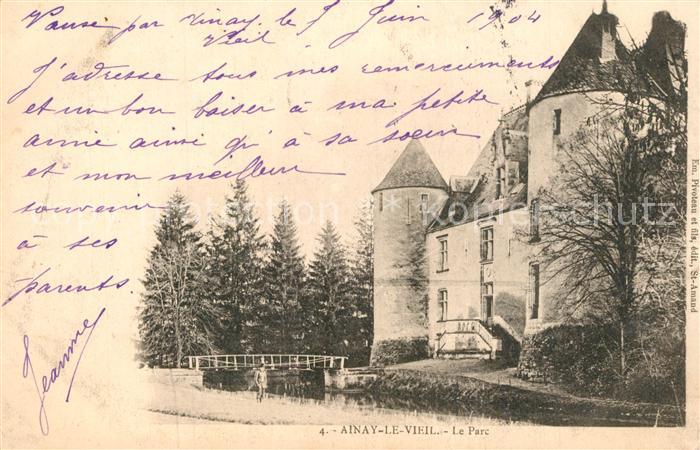 par Ainay le
Vieil
5 Juin 1904
J'adresse tous mes remerciements
et un bon baiser à ma petite
amie ainsi qu'à sa soeur
et mon meilleur
souvenir
à ses
parents.
Jeanne
copyright protection - Kopierschutz
Em. Pivoteau et fils, édit., St-Amand
4. - AINAY-LE-VIEIL. - Le Parc